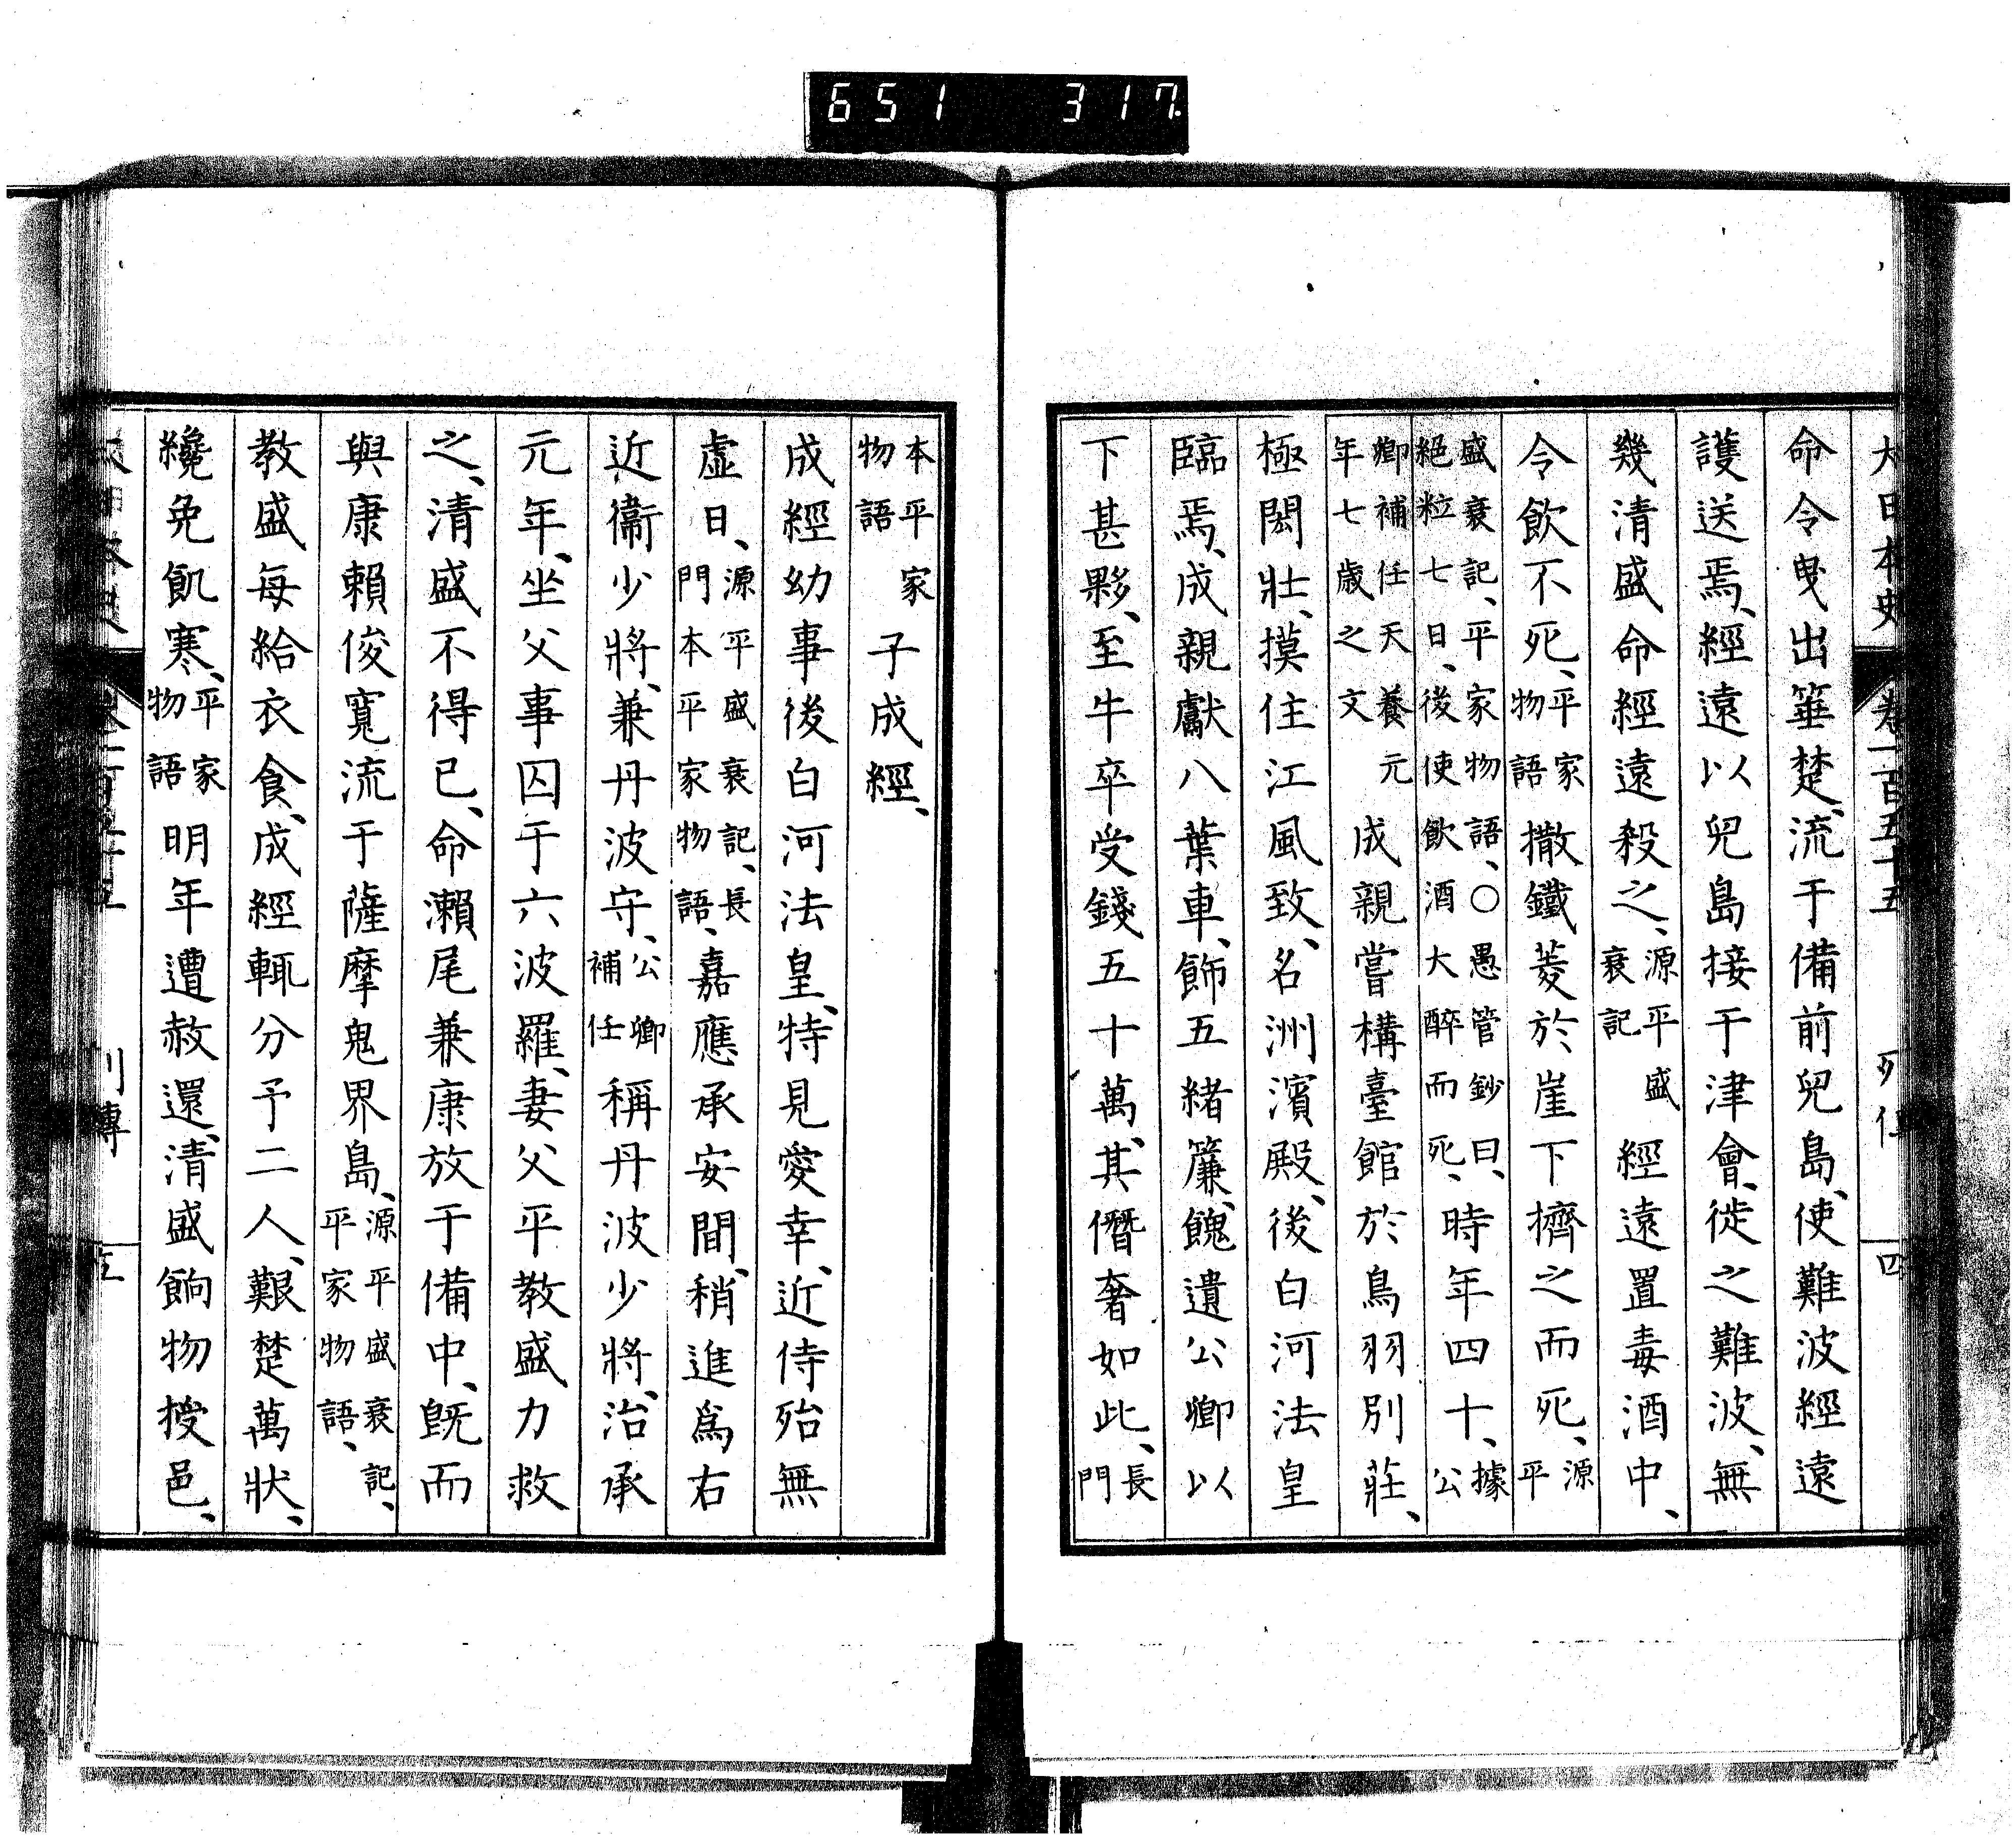 651 317
大日本史 卷一百五十五 列傳 四
命令曳出箠楚、流于備前兒島、使難波經遠
護送焉、經遠以兒島接于津會、徙之難波、無
幾清盛命經遠殺之、源平盛衰記 經遠置毒酒中、
令飲不死、平家物語 撒鐵菱於崖下擠之而死、源平
盛衰記、平家物語、○愚管鈔曰、絕粒七日、後使飲酒大醉而死、時年四十、據公
卿補任天養元年七歲之文 成親嘗構臺館於鳥羽別莊、
極閎壯、摸住江風致、名洲濱殿、後白河法皇
臨焉、成親獻八葉車、飾五緒簾、餽遺公卿以
下甚夥、至牛卒受錢五十萬、其僭奢如此、長門
本平家物語 子成經、
成經幼事後白河法皇、特見愛幸、近侍殆無
虛日、源平盛衰記、長門本平家物語、嘉應承安間、稍進爲右
近衞少將、兼丹波守、公卿補任 稱丹波少將、治承
元年、坐父事囚于六波羅、妻父平教盛力救
之、清盛不得已、命瀨尾兼康放于備中、旣而
與康賴俊寬流于薩摩鬼界島、源平盛衰記、平家物語、
教盛每給衣食、成經輒分予二人、艱楚萬狀、
纔免飢寒、平家物語 明年遭赦還、清盛餉物授邑、
列傳